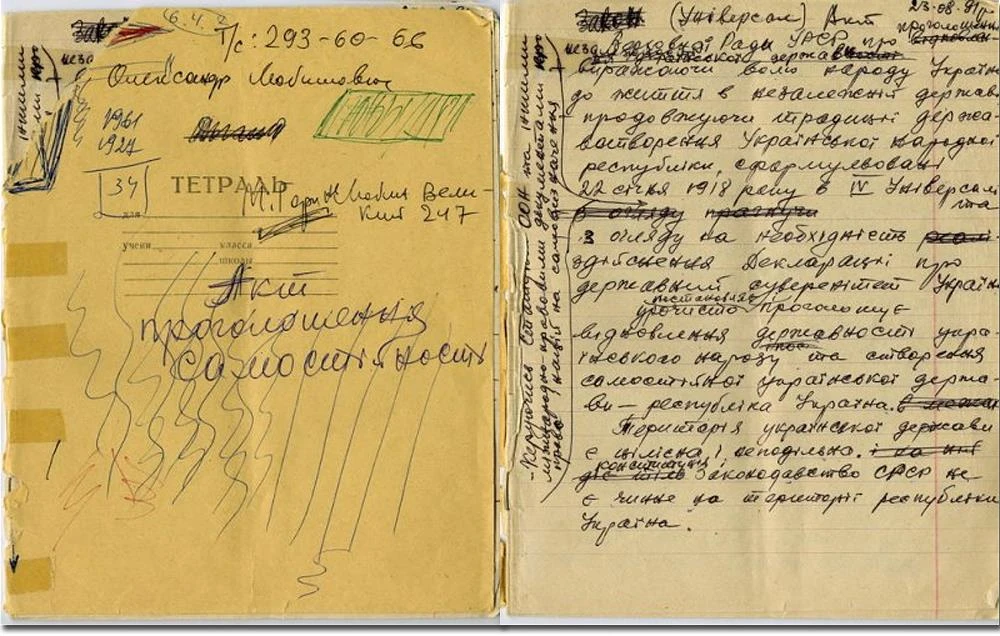 6.4.2
Т/с: 293-60-66
Олександр Любимович
1961
1927
34
ТЕТРАДЬ
М. Горин Любин Вели-
кий 247
для
учени класса
школы
Акт
проголошення
самостійності
23-08-91 р.
Закон (Універсал) Акт
проголошення
Верховної Ради УРСР про
української держав
виражаючи волю народу Україн
до життя в незалежній держав
продовжуючи традиції держа-
вотворення Української народної
республіки, сформульовані
22 січня 1918 року в IV Універсалі
та
в огляду прагнучи
з огляду на необхідність
здійснення Декларації про
державний суверенітет Україн
постановляє
урочисто проголошує
відновлення державності укра-
їнського народу та створення
самостійної української держа-
ви — республіка Україна. в межах
Територія української держави
є цілісна і неподільна. і на ній
конституція
діє тіль Законодавство СРСР не
є чинне на території республіки
Україна.
- Керуючись Статутом ООН та іншими
міжнародно-правовими документами про
право націй на самовизначення